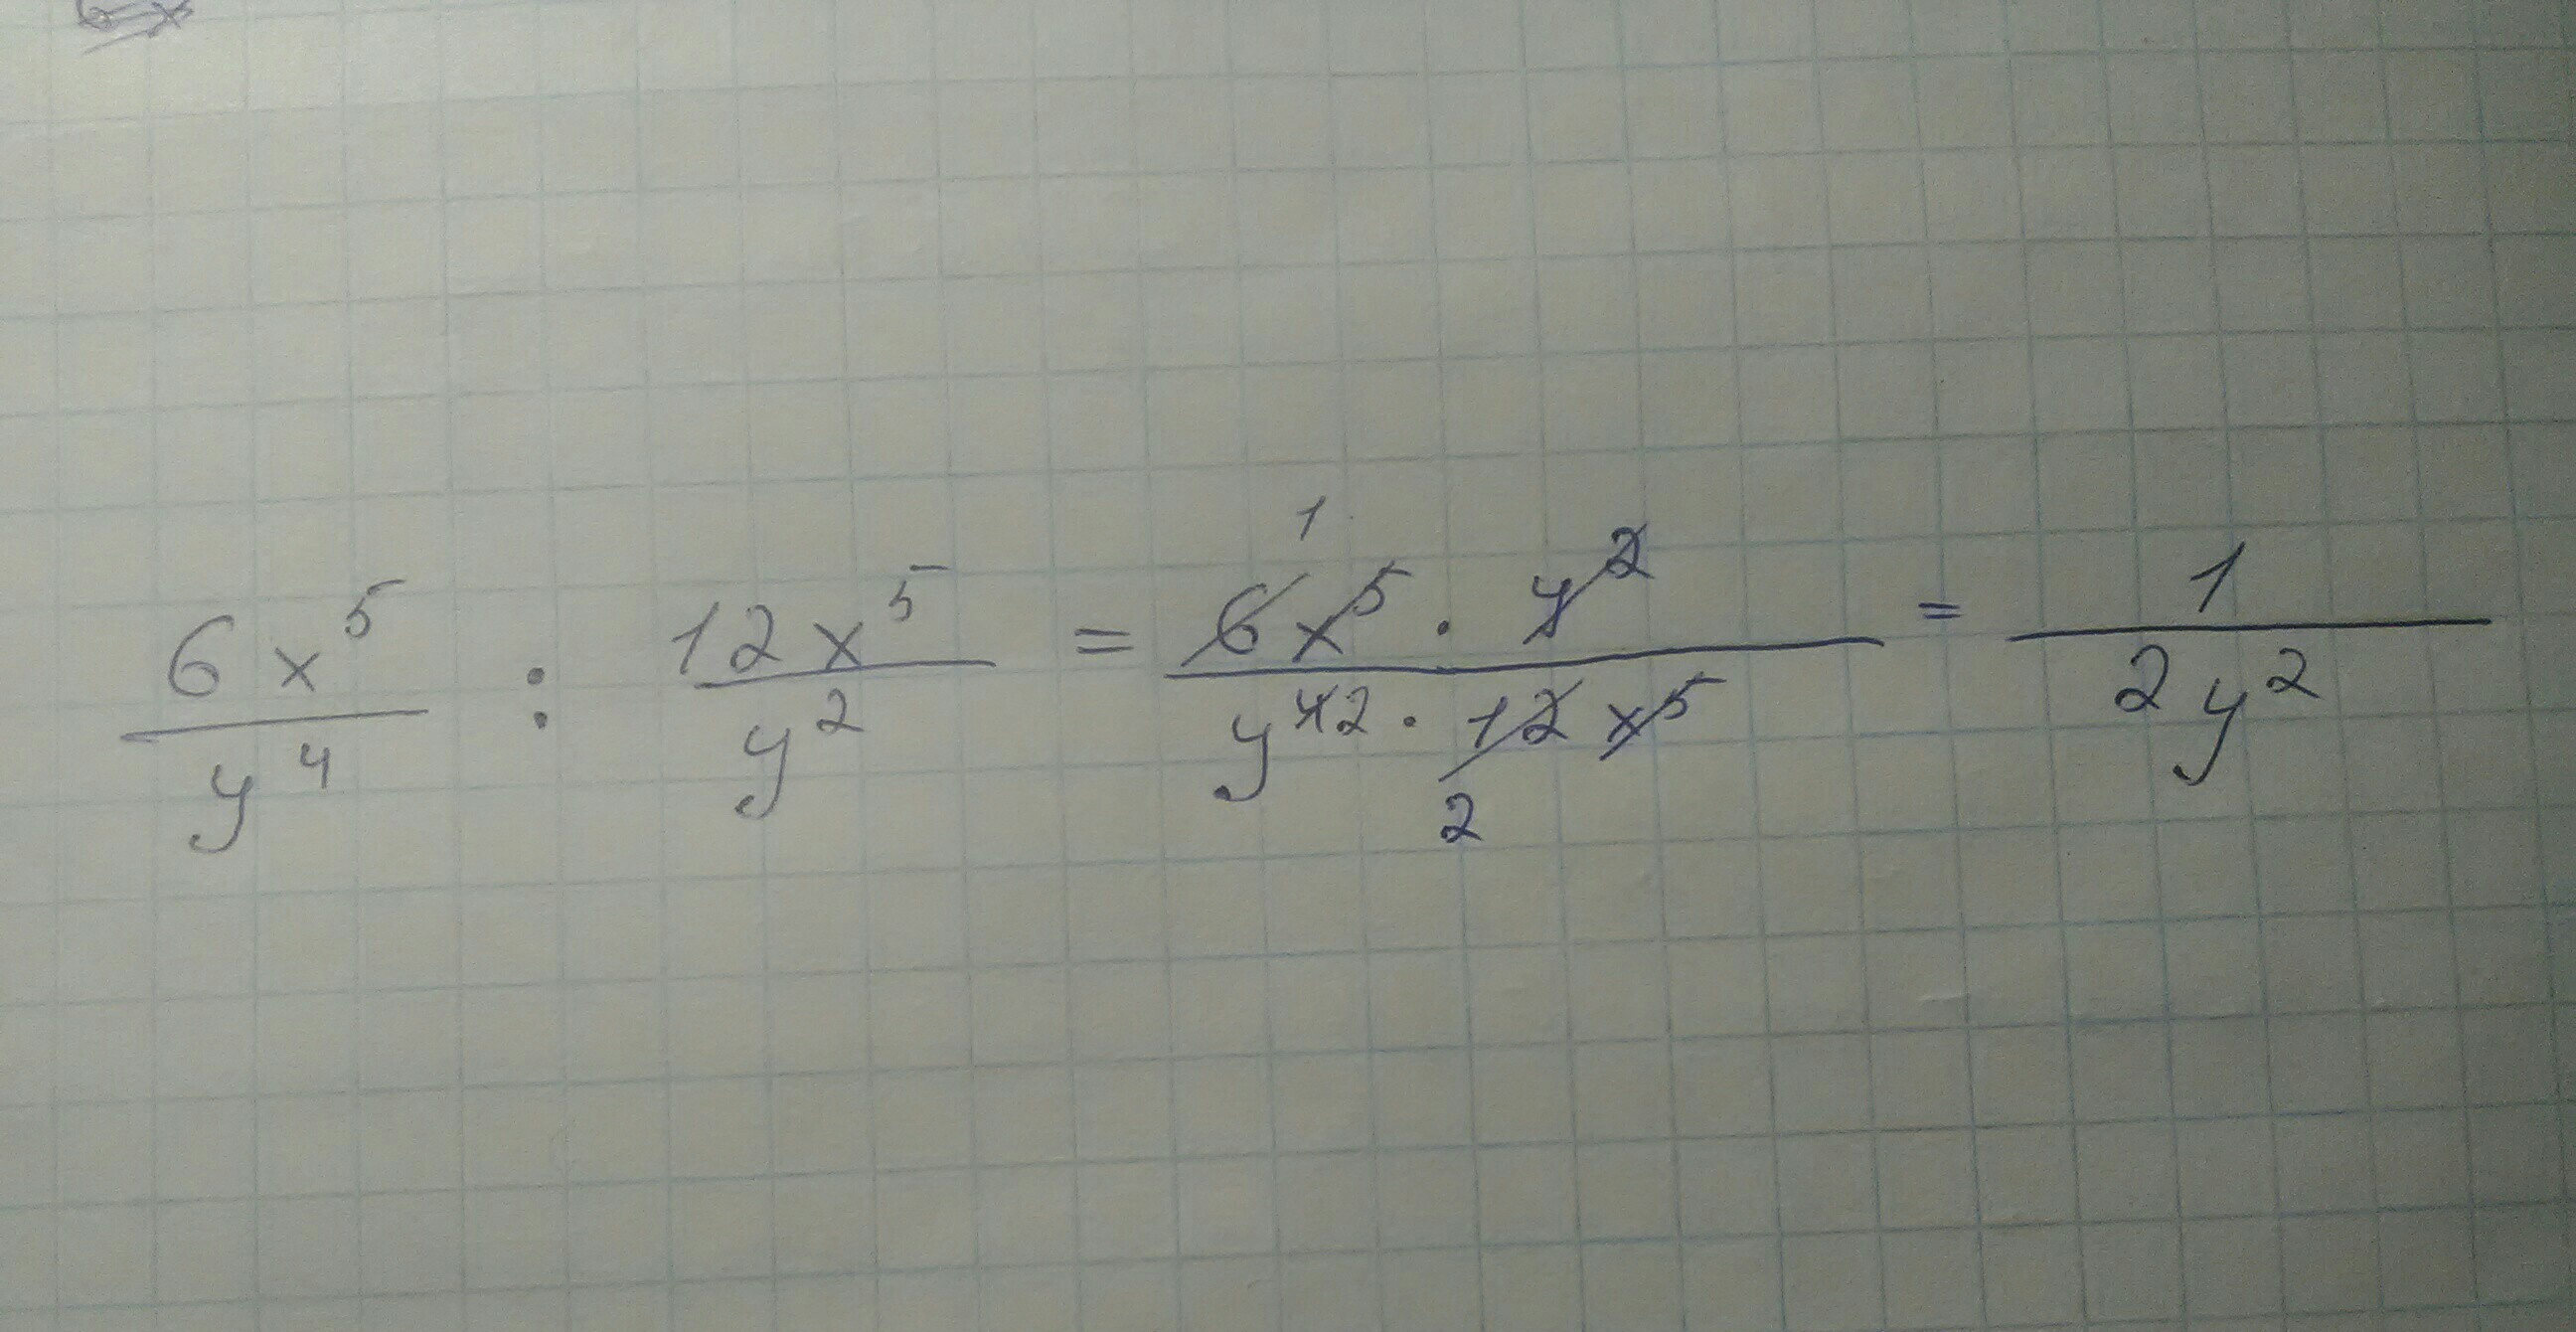 6x⁵/y⁴ : 12x⁵/y² = 6x⁵ · y²/y⁴² · 12x⁵ = 1/2y²
1
2